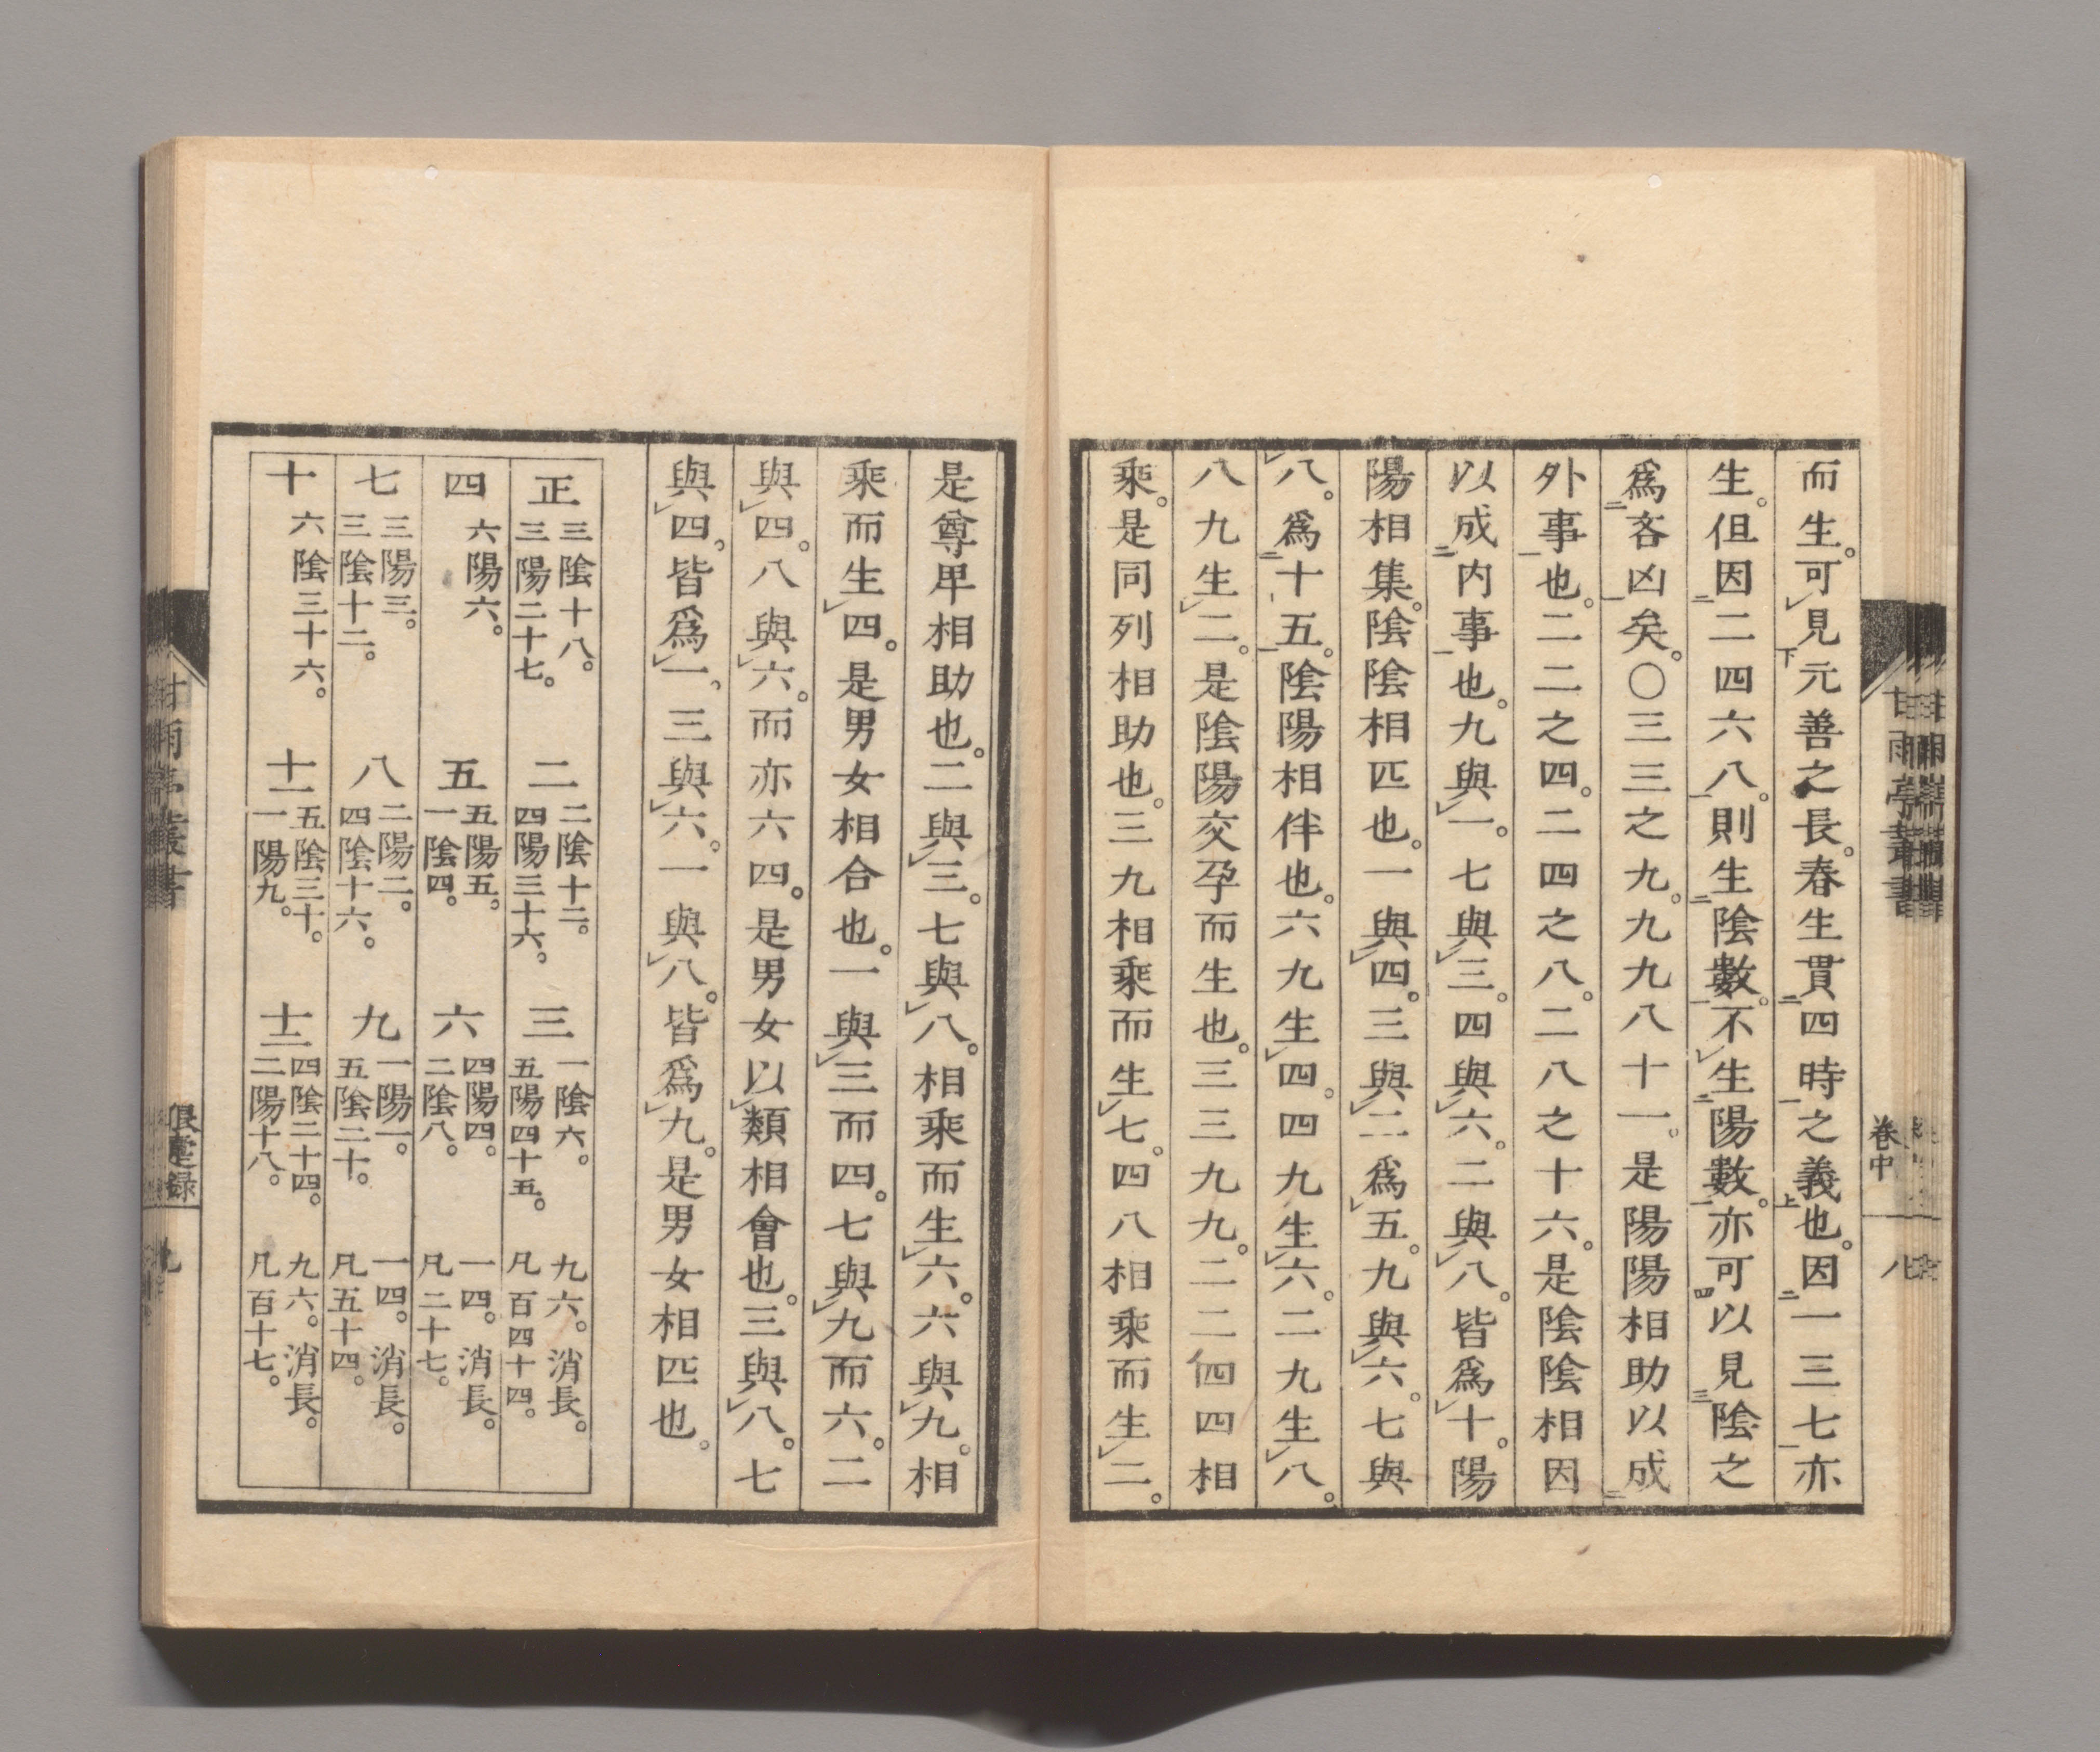 而生。可見元善之長。春生貫四時之義也。因一三七亦
生。但因二四六八。則生陰數。不生陽數。亦可以見陰之
爲吝凶矣。〇三三之九。九九八十一。是陽陽相助以成
外事也。二二之四。二四之八。二八之十六。是陰陰相因
以成内事也。九與一。七與三。四與六。二與八。皆爲十。陽
陽相集。陰陰相匹也。一與四。三與二爲五。九與六。七與
八。爲十五。陰陽相伴也。六九生四。四九生六。二九生八。
八九生二。是陰陽交孕而生也。三三九九。二二四四相
乘。是同列相助也。三九相乘而生七。四八相乘而生二。
甘雨亭叢書
卷中
八
是尊卑相助也。二與三。七與八。相乘而生六。六與九。相
乘而生四。是男女相合也。一與三而四。七與九而六。二
與四。八與六。而亦六四。是男女以類相會也。三與八。七
與四。皆爲一。三與六。一與八。皆爲九。是男女相匹也。
正
三陰十八。
三陽二十七。
二
二陰十二。
四陽三十六。
三
一陰六。
五陽四十五。
九六。消長。
凡百四十四。
四
六陽六。
五
五陽五。
一陰四。
六
四陽四。
二陰八。
一四。消長。
凡二十七。
七
三陽三。
三陰十二。
八
二陽二。
四陰十六。
九
一陽一。
五陰二十。
一四。消長。
凡五十四。
十
六陰三十六。
十一
五陰三十。
一陽九。
十二
四陰二十四。
二陽十八。
九六。消長。
凡百十七。
叢書
錄
九